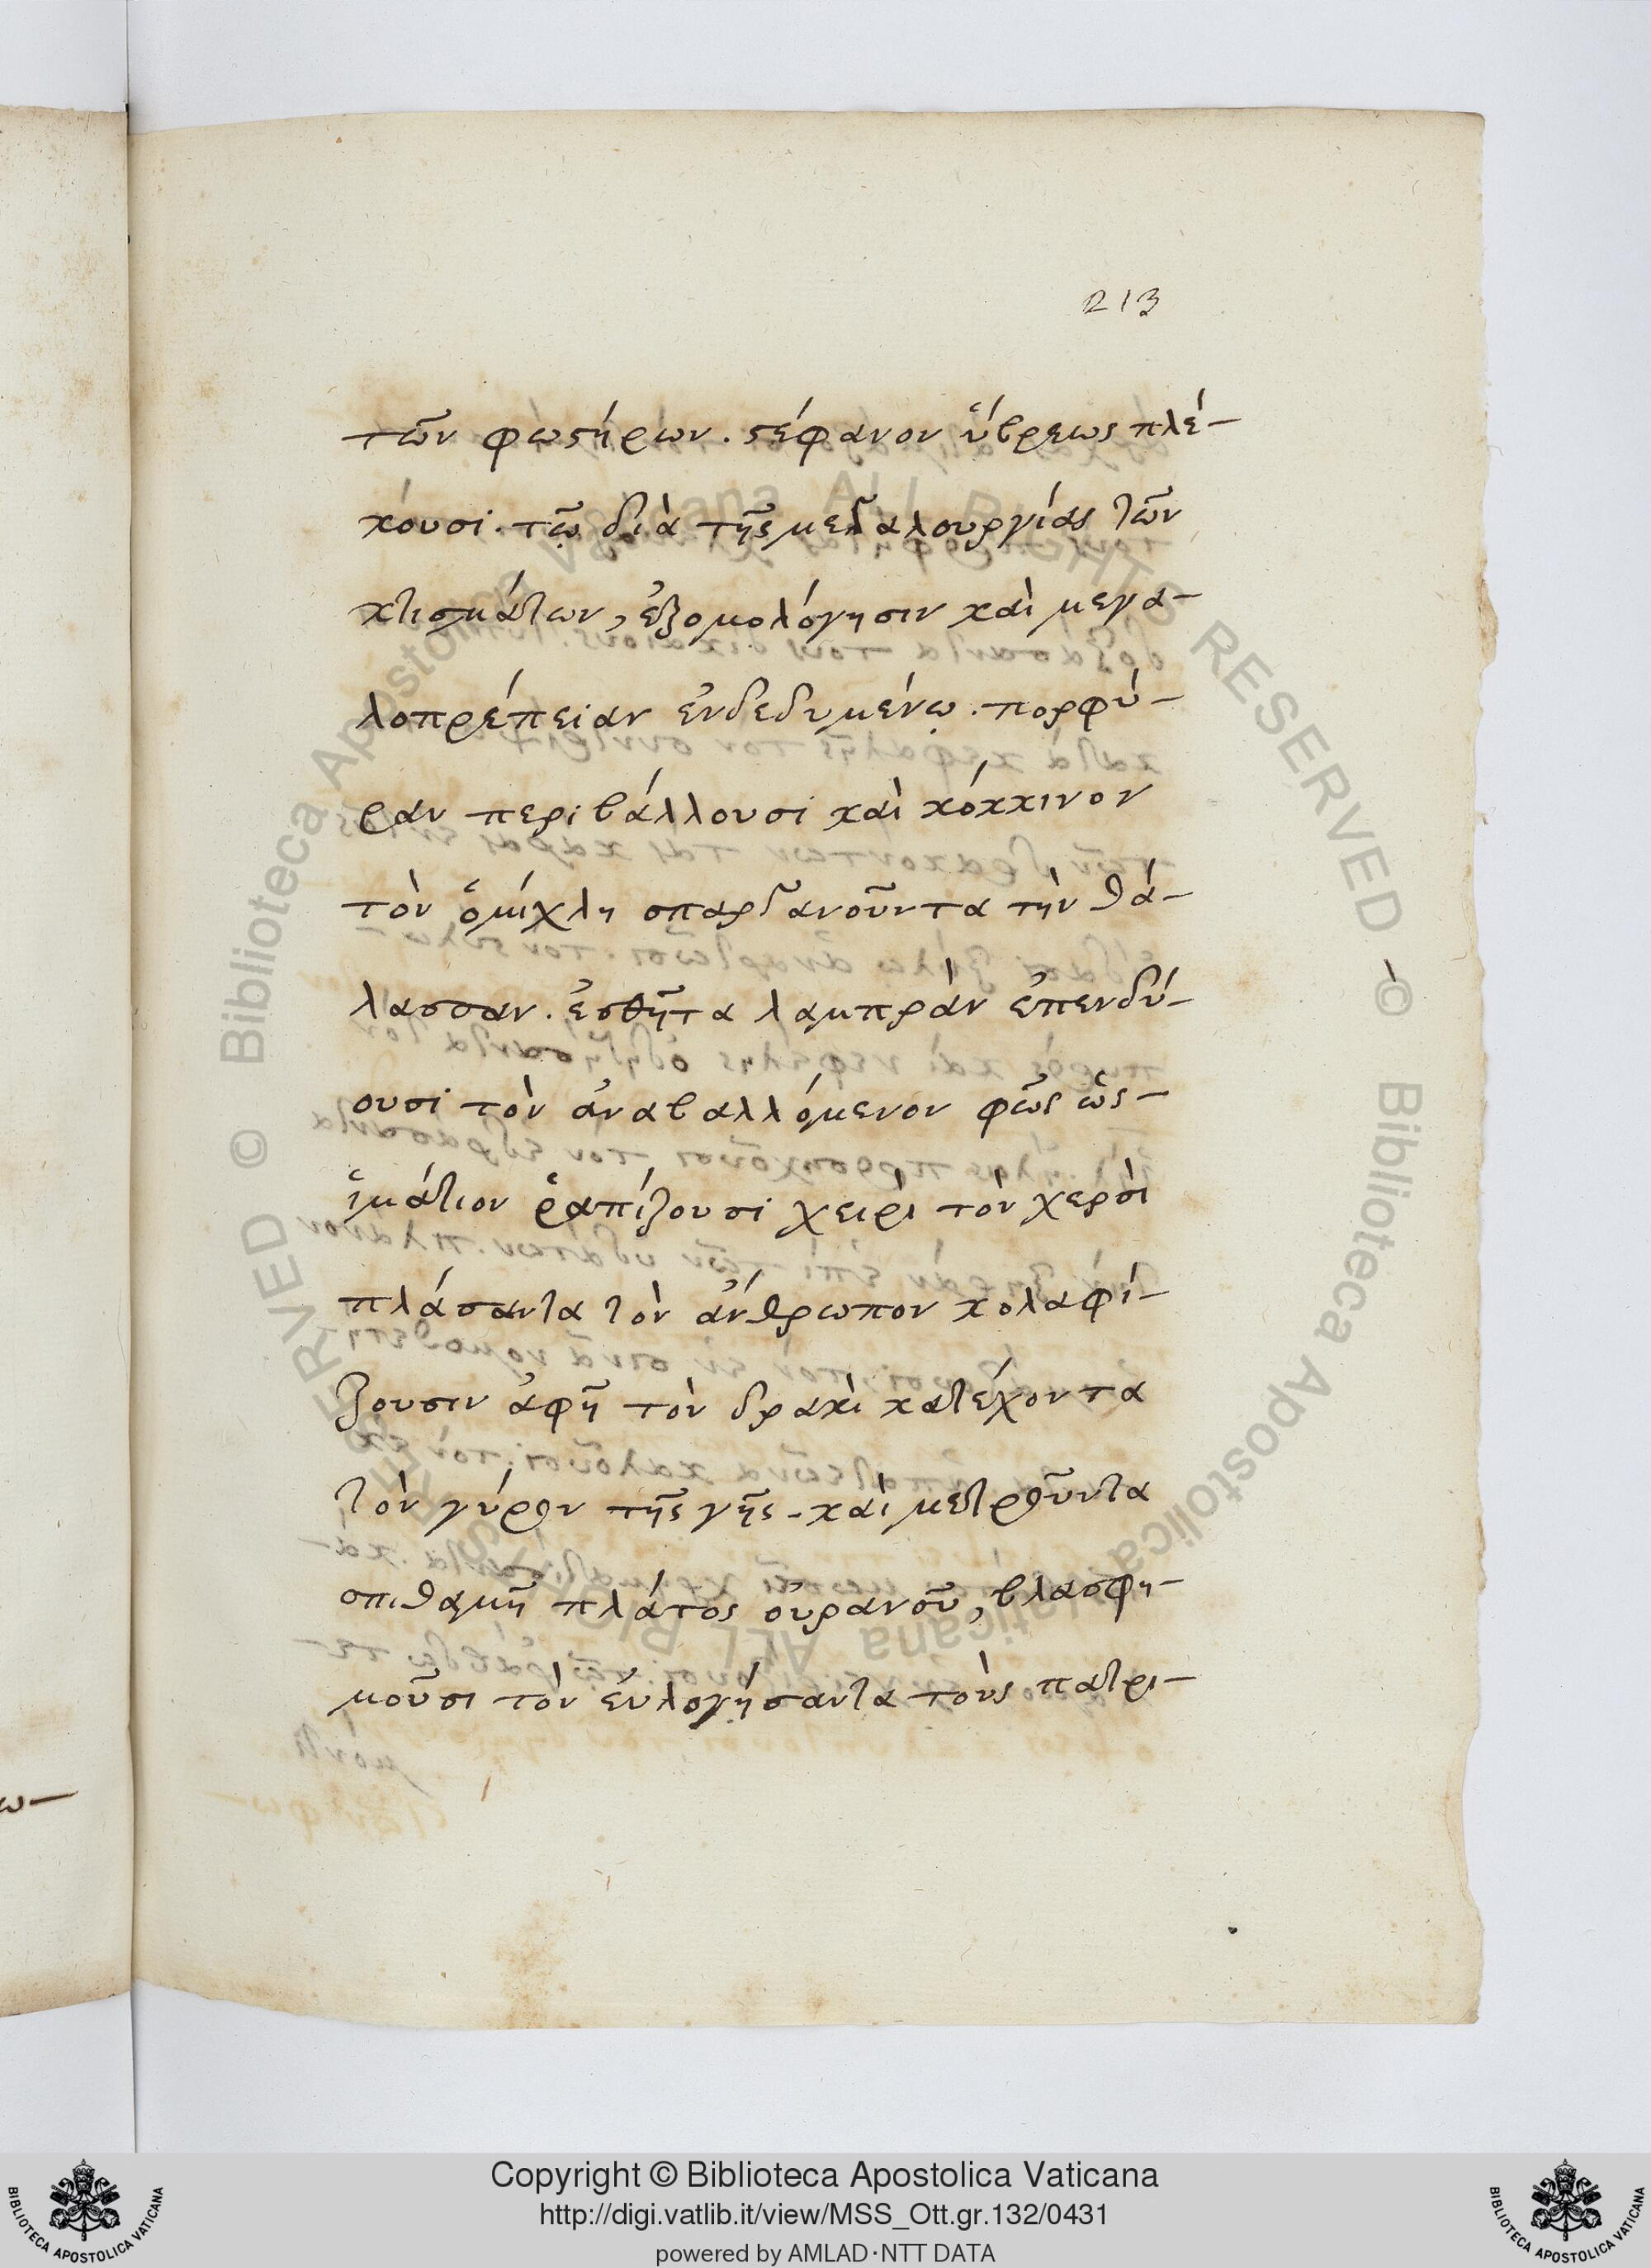 213
τῶν φωστήρων. στέφανον ὕβρεως πλέ-
κουσι. τῶ διὰ τῆς μεγαλουργίας τῶν
κτισμάτων, ἐξομολόγησιν καὶ μεγα-
λοπρέπειαν ἐνδεδυμένω. πορφύ-
ραν περιβάλλουσι καὶ κόκκινον
τὸν ὁμίχλη σπαργανοῦντα τὴν θά-
λασσαν. ἐσθῆτα λαμπρὰν ἐπενδύ-
ουσι τὸν ἀναβαλλόμενον φῶς ὡς-
ἱμάτιον ῥαπίζουσι χειρὶ τὸν χερσὶ
πλάσαντα τὸν ἄνθρωπον κολαφί-
ζουσιν ἀφῆ τὸν δρακὶ κατέχοντα
τὸν γύρον τῆς γῆς. καὶ μετροῦντα
σπιθαμῆ πλάτος οὐρανοῦ, βλασφη-
μοῦσι τὸν εὐλογήσαντα τοὺς πατρι-
ω-
Copyright © Biblioteca Apostolica Vaticana
http://digi.vatlib.it/view/MSS_Ott.gr.132/0431
powered by AMLAD·NTT DATA
BIBLIOTECA APOSTOLICA VATICANA
BIBLIOTECA APOSTOLICA VATICANA
© Biblioteca Apostolica Vaticana ALL RIGHTS RESERVED
© Biblioteca Apostolica Vaticana ALL RIGHTS RESERVED